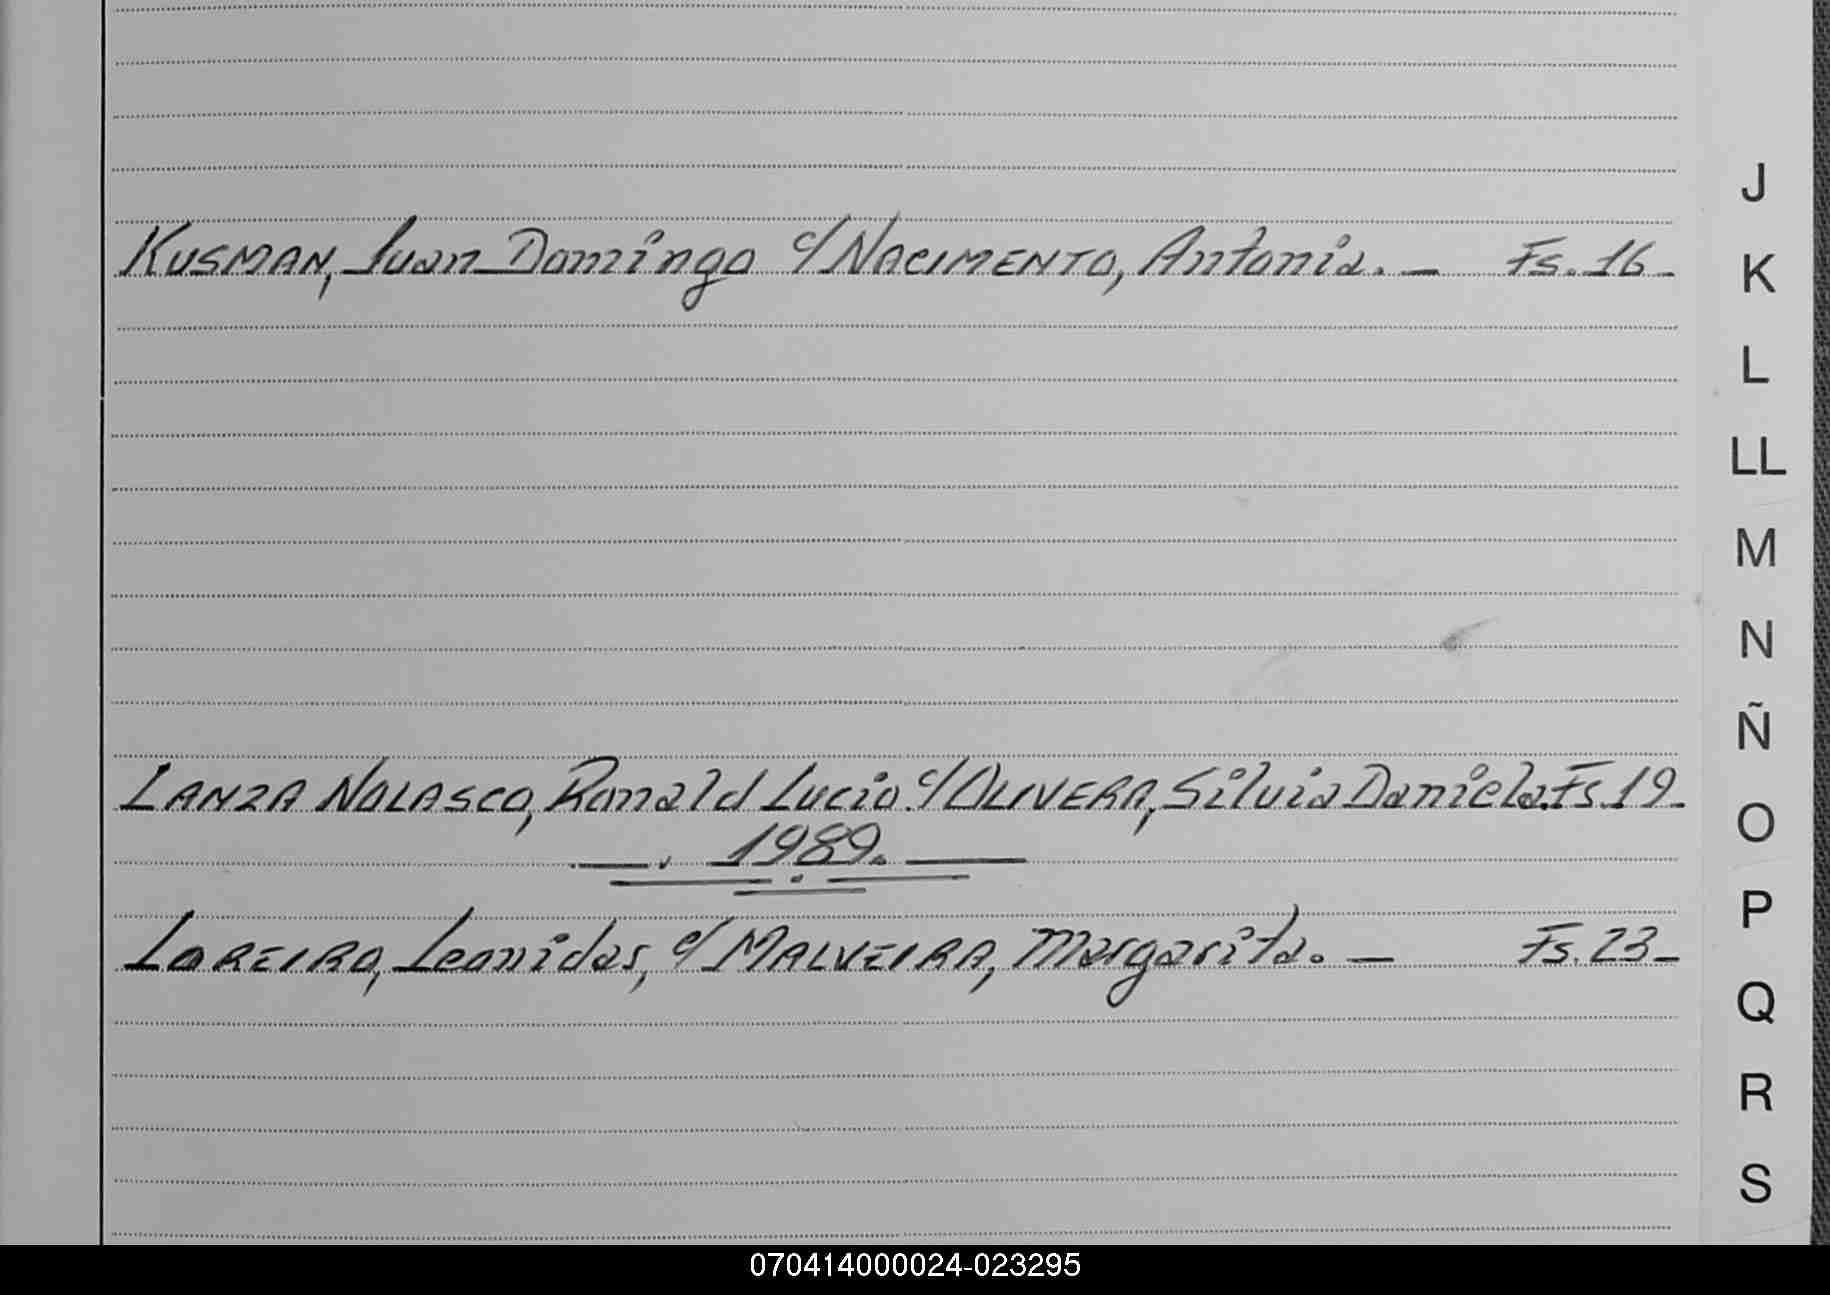 J
KUSMAN, Juan Domingo c/ NACIMENTO, Antonia. — Fs. 16-
K
L
LL
M
N
Ñ
LANZA NOLASCO, Ronald Lucio. c/ OLIVERA, Silvia Daniela. Fs. 19-
O
1989.
P
LOREIRO, Leonidas, c/ MALVEIRA, Margarita. — Fs. 23-
Q
R
S
070414000024-023295